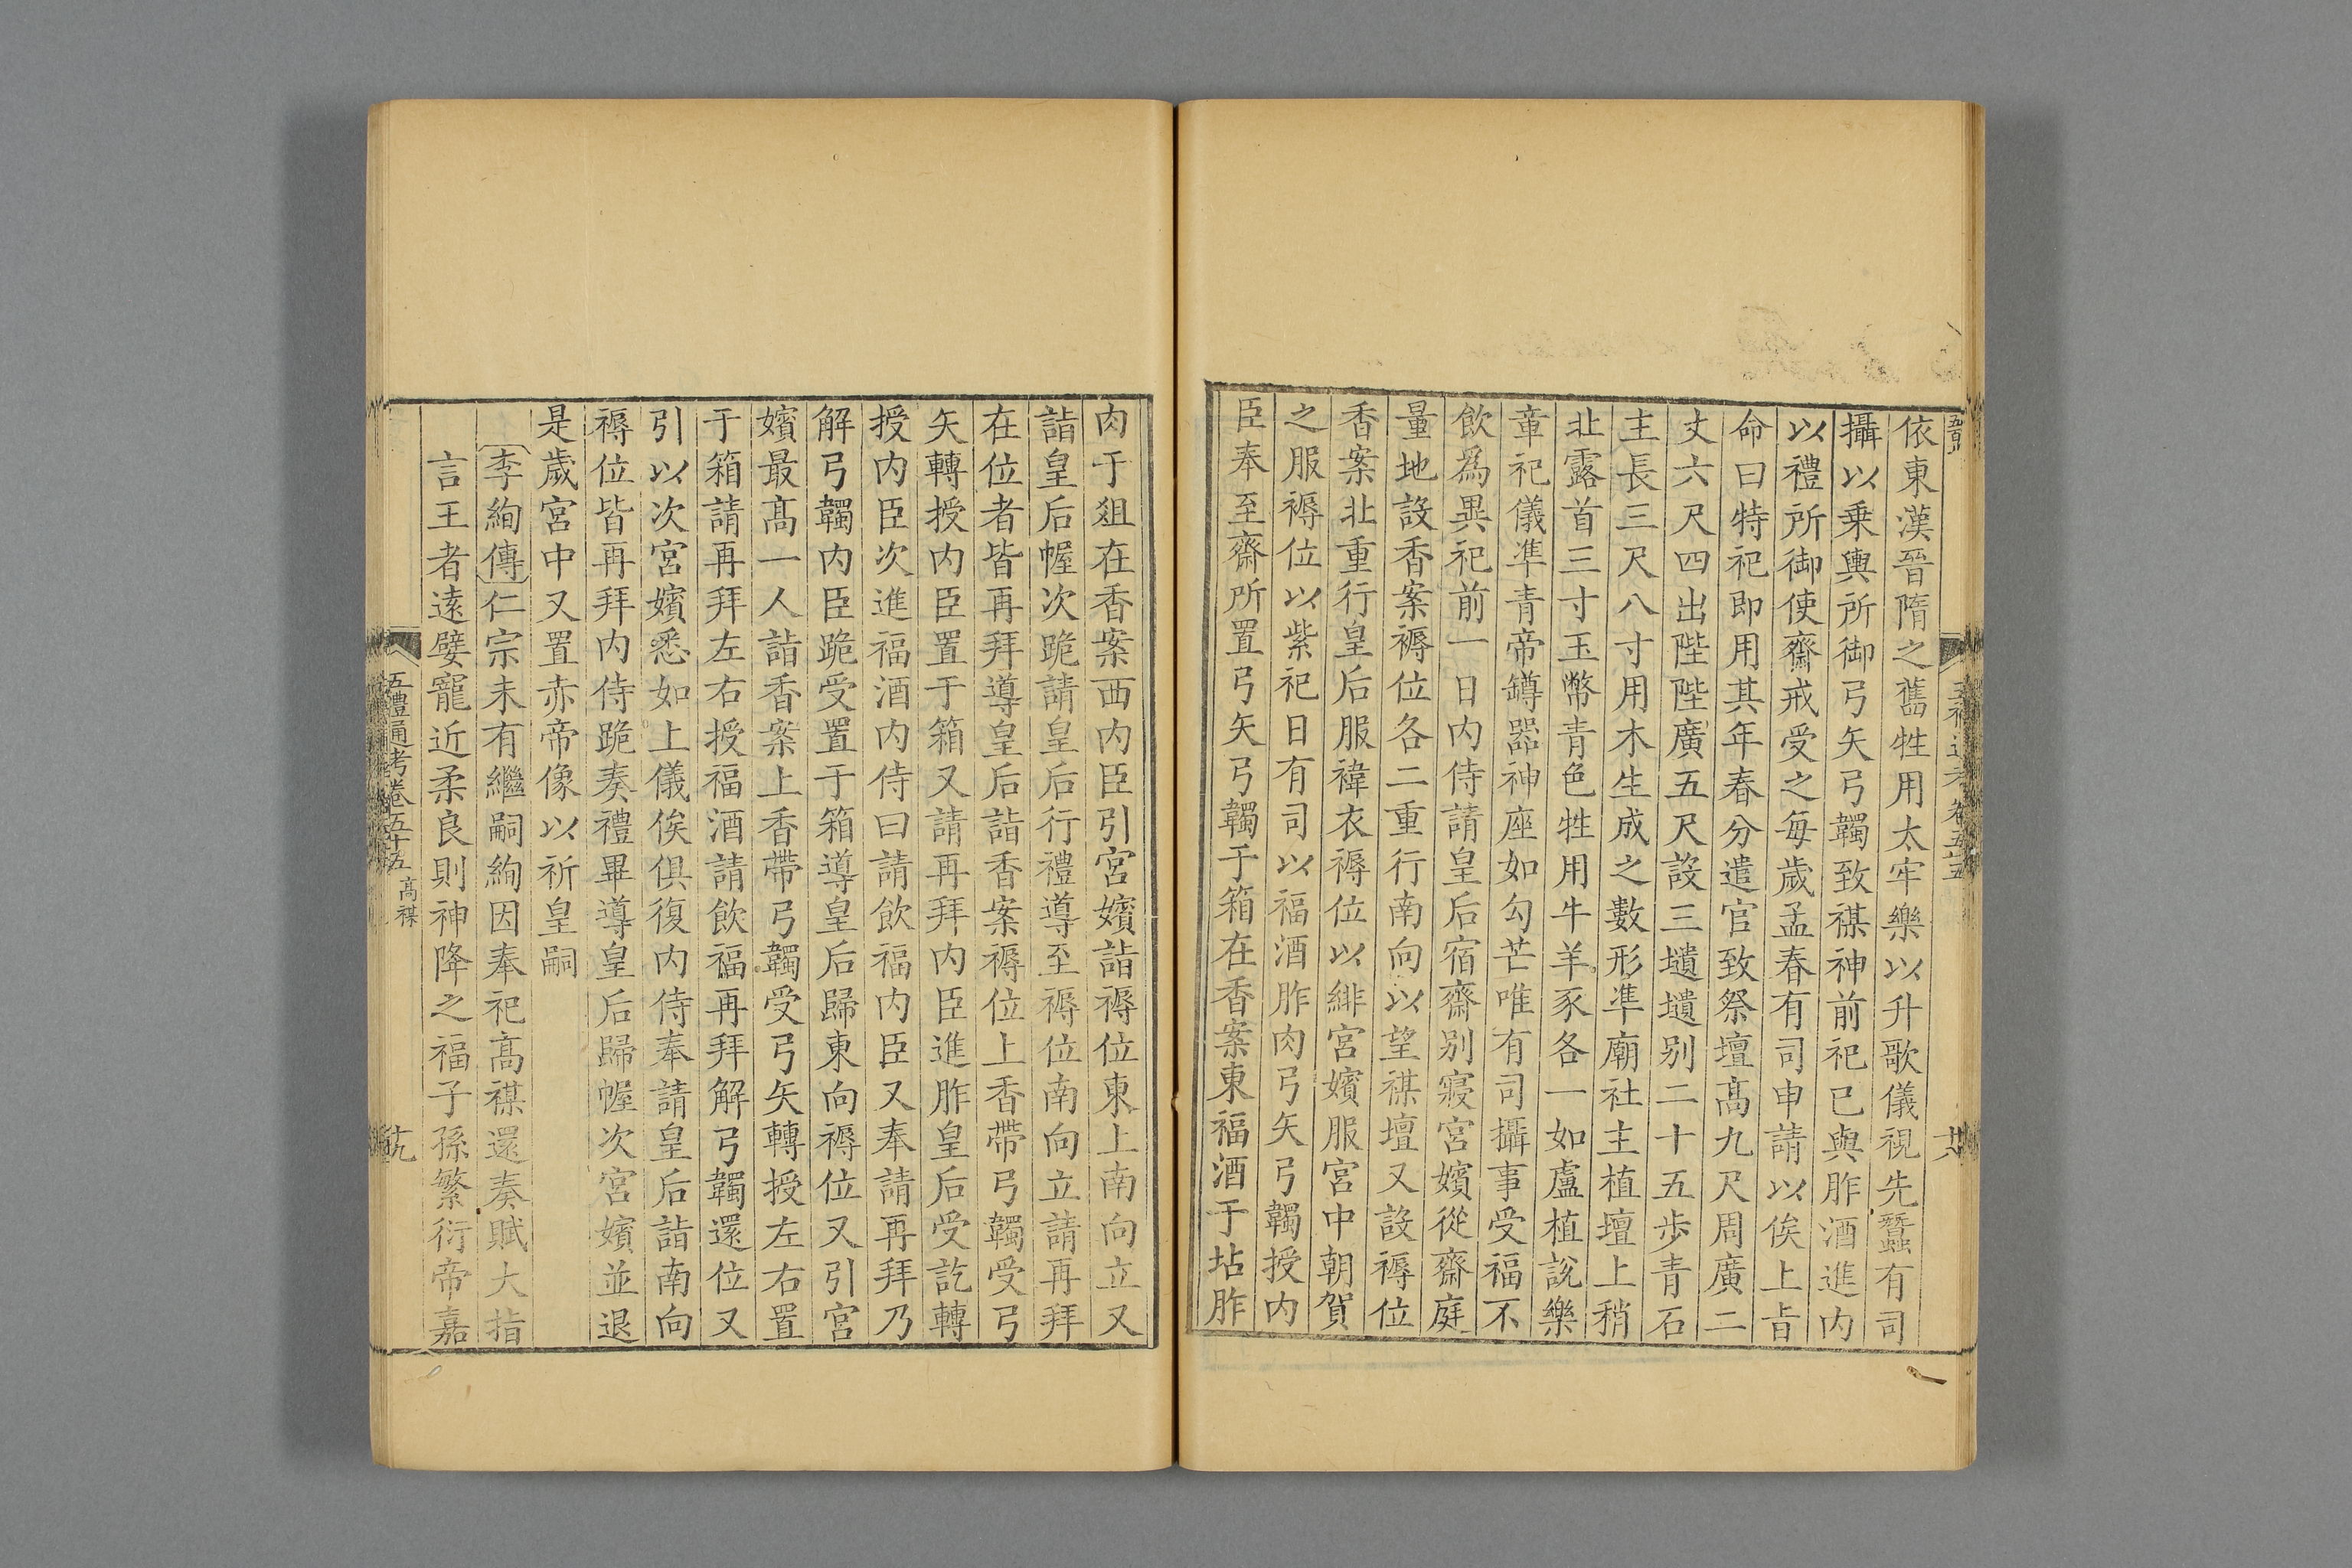 依東漢晉隋之舊牲用太牢樂以升歌儀視先蠶有司
攝以乗輿所御弓矢弓韣致禖神前祀已與胙酒進内
以禮所御使齋戒受之每歲孟春有司申請以俟上旨
命曰特祀即用其年春分遣官致祭壇髙九尺周廣二
丈六尺四出陛陛廣五尺設三壝壝别二十五歩青石
主長三尺八寸用木生成之數形凖廟社主植壇上稍
北露首三寸玉幣青色牲用牛羊豕各一如盧植說樂
章祀儀凖青帝罇器神座如勾芒唯有司攝事受福不
飲爲異祀前一日内侍請皇后宿齋别寢宮嬪從齋庭
量地設香案褥位各二重行南向以望禖壇又設褥位
香案北重行皇后服褘衣褥位以緋宮嬪服宮中朝賀
之服褥位以紫祀日有司以福酒胙肉弓矢弓韣授内
臣奉至齋所置弓矢弓韣于箱在香案東福酒于坫胙
肉于爼在香案西内臣引宮嬪詣褥位東上南向立又
詣皇后幄次跪請皇后行禮導至褥位南向立請再拜
在位者皆再拜導皇后詣香案褥位上香帶弓韣受弓
矢轉授内臣置于箱又請再拜内臣進胙皇后受訖轉
授内臣次進福酒内侍曰請飲福内臣又奉請再拜乃
解弓韣内臣跪受置于箱導皇后歸東向褥位又引宮
嬪最髙一人詣香案上香帶弓韣受弓矢轉授左右置
于箱請再拜左右授福酒請飲福再拜解弓韣還位又
引以次宮嬪悉如上儀俟俱復内侍奉請皇后詣南向
褥位皆再拜内侍跪奏禮畢導皇后歸幄次宮嬪並退
是歲宮中又置赤帝像以祈皇嗣
李絢傳仁宗未有繼嗣絢因奉祀髙禖還奏賦大指
言王者逺嬖寵近柔良則神降之福子孫繁衍帝嘉
五禮通考卷五十五 髙禖